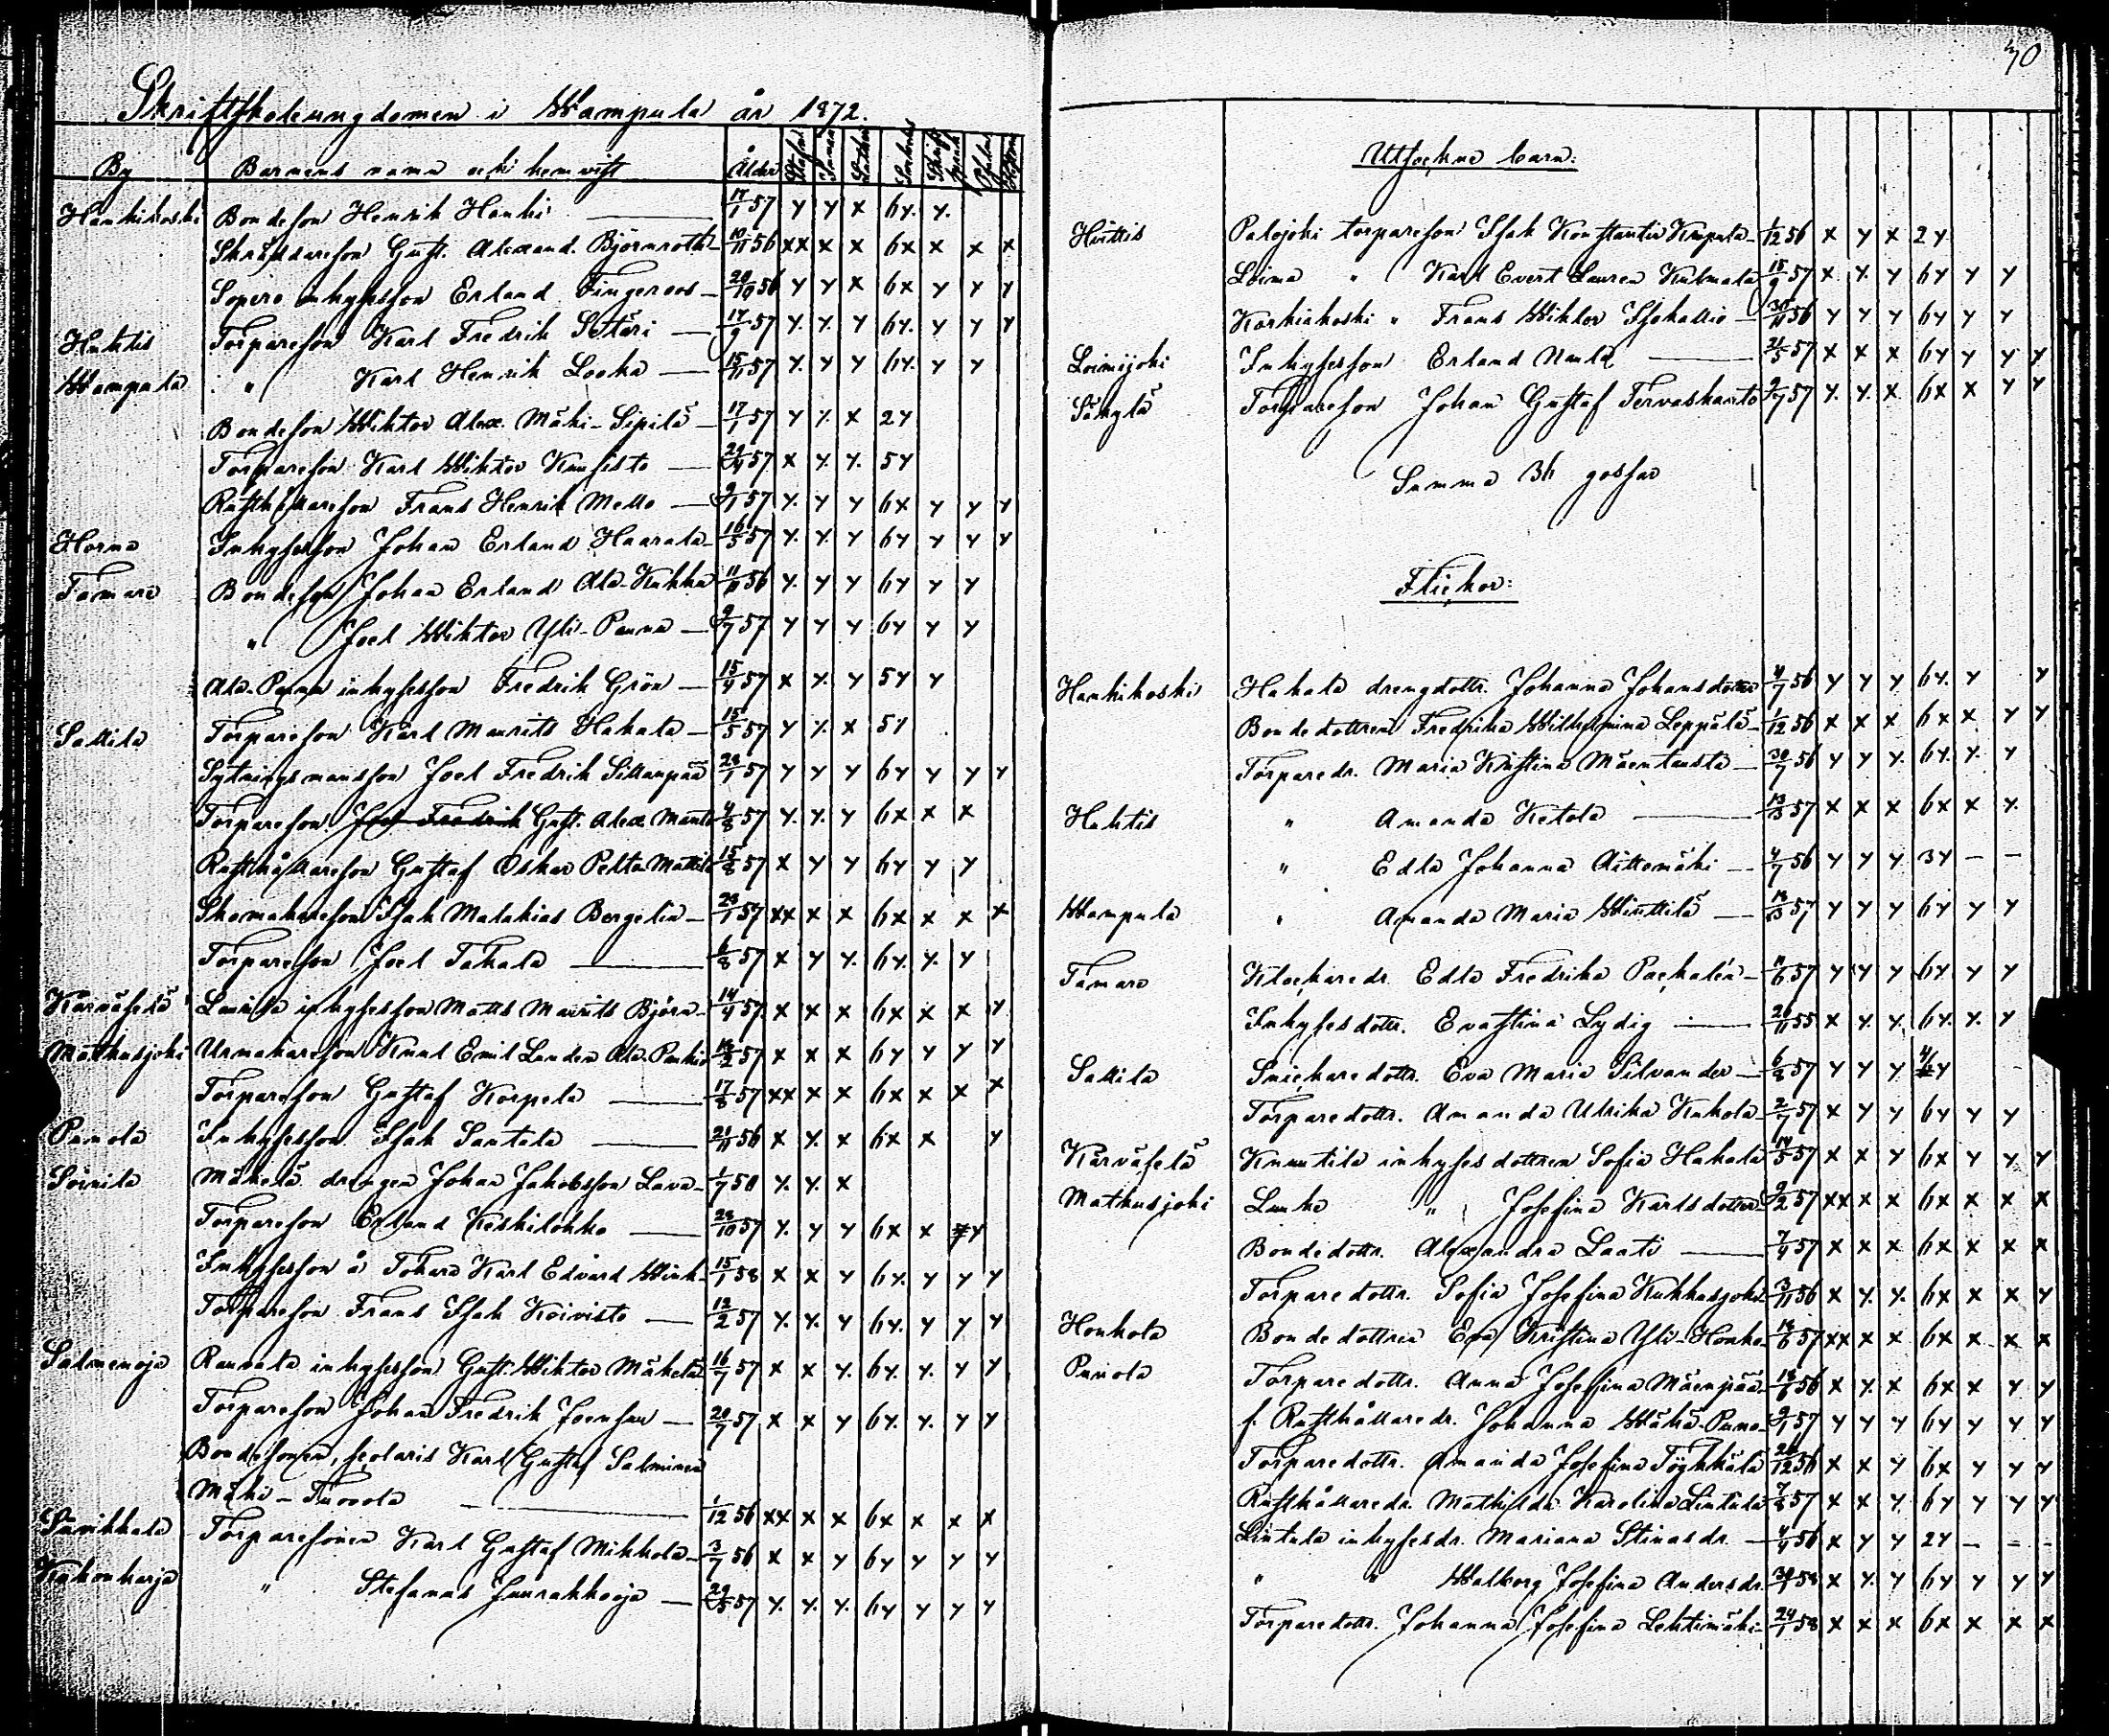 Skriftskoleungdomen i Wampula år 1872.
By Barnens namn och hemvist Ålder
Hankikoski Bondeson Henrik Hanki 17/1 57 y y x 6y. y.
Skräddareson Gust. Alexand. Björnroth 10/11 56 xx x x 6x x x x
Sopero inhysesson Erland Fingeroos 20/9 56 y y x 6x y y y
Huhtis Torpareson Karl Fredrik Settäri 17/9 57 y. y. y 6y. y y y
Wampula " Karl Henrik Looka 15/11 57 y. y y 6y. y y
Bondeson Wiktor Alex. Mäki-Sipilä 17/1 57 y y. x 2y
Torpareson Karl Wiktor Kuusisto 57 x y. y. 5y
Rusthållareson Frans Henrik Mello 57 y. y y 6x y y y
Horna Inhysesson Johan Erland Haarala 16/5 57 y. y. y 6y y y y
Tamare Bondeson Johan Erland Ala-Kukka 11/11 56 y. y y 6y y y
" Joel Wiktor Yli-Panna 9/7 57 y y y 6y y y
Ala-Panna inhysesson Fredrik Grön 15/4 57 x y. y 5y y
Sallila Torpareson Karl Maurits Hakala 15/5 57 y y. x 5y
Sytningsmansson Joel Fredrik Sillanpää 57 y y y 6y y y y
Torpareson Joel Fredrik Gust. Alex. Manto 4/8 57 y. y. y 6x x x
Rusthållareson Gustaf Oskar Pelto-Mattila 15/8 57 x y y 6y y y
Skomakareson Isak Malakias Bergelin 57 xx x x 6x x x x
Torpareson Joel Takala 6/8 57 x y y. 6y. y. y
Karväselä Laurila inhysesson Matts Maurits Björn 14/4 57 x x x 6x x x y
Mathusjoki Urmakareson Knut Emil Lunden Ala-Penkio 57 x x x 6y y y y
Torpareson Gustaf Korpela 17/8 57 xx x x 6x x x x
Punola Inhysesson Isak Santala 21/11 56 x y. x 6x x y
Soinila Mäkelä drengen Johan Jakobsson Lava 1/7 50 y. y. x
Torpareson Erland Keskilohko 57 y. y y 6x x y
Inhysesson å Tokero Karl Edvard Wink 15/1 58 x x y 6y. y y y
Torpareson Frans Isak Koivisto 12/2 57 y. y. y 6y. y y y
Salmenoja Raurala inhysesson Gust. Wiktor Mäkelä 16/7 57 x x y. 6y. y. y y
Torpareson Johan Fredrik Joensuu 20/7 57 x x y 6y. y. y y
Bondesonen, scolaris Karl Gustaf Salminen
Mäki-Turola 1/12 56 xx x x 6x x x x
Sarikkala Torparesonen Karl Gustaf Mikkola 3/7 56 x x y 6y y y y
Kukonharja " Stefanus Juurakkooja 29/5 57 y. y. y. 6y y y y
70
Utsockne barn:
Huittis Palojoki torpareson Isak Konstantin 1/12 56 x y x 2y
Loima " Karl Evert Lauren Kulmala 15/9 57 x y. y 6y y y
Korkiakoski " Frans Wiktor Isokallio 56 y y y 6y y y
Loimijoki Inhysesson Erland Nantä 21/5 57 x x x 6y y y y
Säkylä Torpareson Johan Gustaf Tervaskanto 57 y. y. x 6x x y y
Summa 36 gossar
Flickor:
Hankikoski Hakala drengdottr. Johanna Johansdotter 4/7 56 y y y. 6y. y y
Bondedottren Fredrika Wilhelmina Leppälä 1/12 56 x x x 6x x y y
Torparedr. Maria Kristina Mäentausta 30/7 56 y y y. 6y. y. y
Huhtis " Amanda Ketola 13/3 57 x x x 6x x y.
" Edla Johanna Aittomäki 4/7 56 y y y. 3y – –
Wampula " Amanda Maria Wiuttilä 57 y y y 6y y y
Tamare Klockaredr. Edla Fredrika Packalén 57 y y y 6y y y
Inhysesdottr. Evastina Lydig 26/11 55 x y. y. 6y. y. y
Sallila Snickaredottr. Eva Maria Silvander 6/8 57 y y y
Torparedottr. Amanda Ulrika Kukola 2/7 57 x y y 6y y y
Karväselä Knuutila inhysesdottren Sofia Hakala 57 x x y 6x y y y
Mathusjoki Lunka " Josefina Karlsdotter 57 xx x x 6x x x x
Bondedottr. Alexandra Laati 7/4 57 x x x 6x x x x
Torparedottr. Sofia Josefina Kukkasjoki 3/11 56 x y. y. 6x x x y
Honkola Bondedottren Eva Kristina Yli-Honko 57 xx x x 6x x x x
Punola Torparedottr. Anna Josefina Mäenpää 56 x y. x 6x x y y
f. Rusthållaredr. Johanna Wähä-Puno 57 y y y 6y y y y
Torparedottr. Amanda Josefina Töykkälä 56 x x y 6x y y y
Rusthållaredr. Mathilda Karolina Lintula 57 x x y. 6y y y y
Lintula inhysesdr. Mariana Stinasdr. 56 x y y 2y – – –
" " Walborg Josefina Andersdr. 58 x y. y 6y y y y
Torparedottr. Johanna Josefina Lehtimäki 24/1 58 x x x 6x x x x